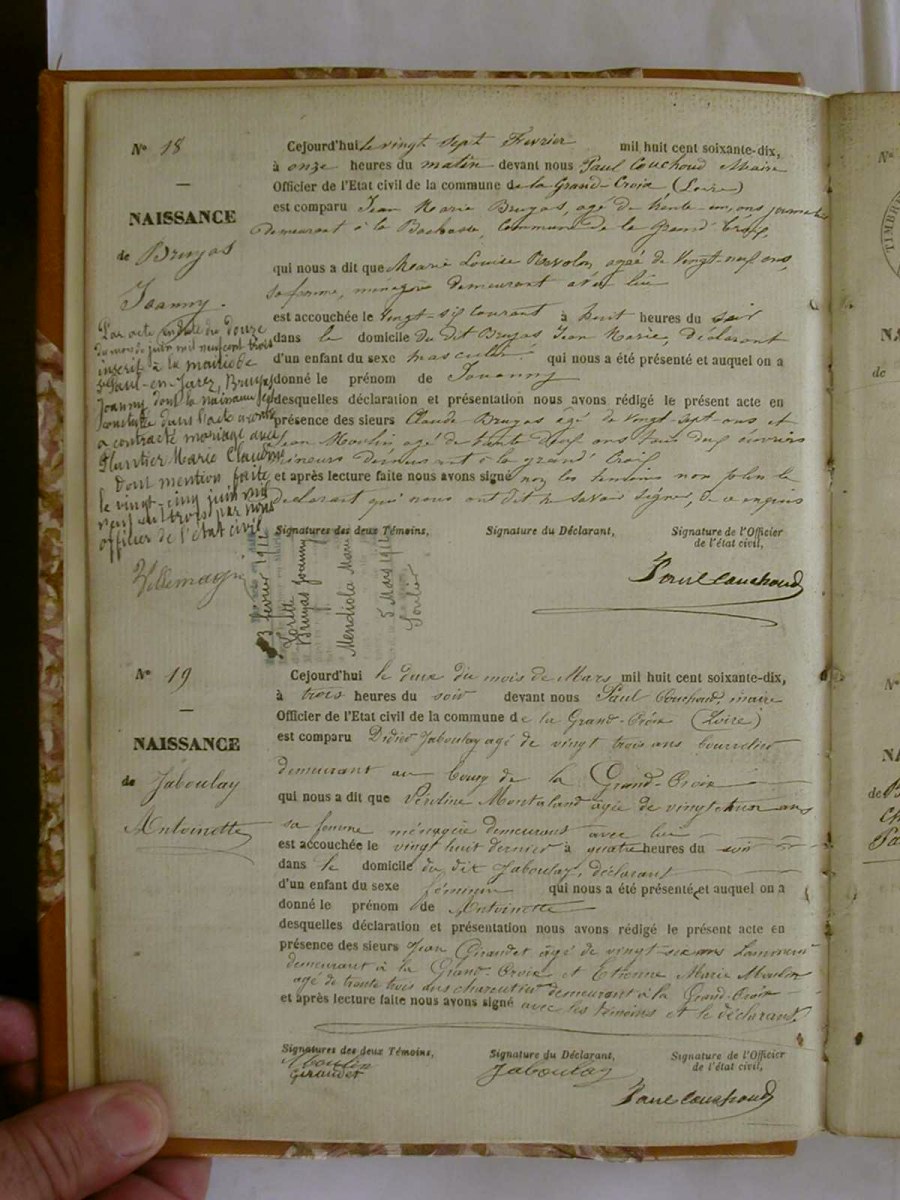 N° 18
NAISSANCE
de Bruyas
Joanny.
Par acte en date du douze
du mois de juin mil neuf cent trois
inscrit à la mairie de
St Paul-en-Jarez, Bruyas
Joanny dont la naissance est
constatée dans l'acte
a contracté mariage avec
Plantier Marie Claudine
Dont mention faite
le vingt-cinq juin mil
neuf cent trois par nous
officier de l'état civil
Villemagne
Cejourd'hui le vingt sept Fevrier mil huit cent soixante-dix,
à onze heures du matin devant nous Paul Couchoud Maire
Officier de l'Etat civil de la commune de la Grand-Croix (Loire)
est comparu Jean Marie Bruyas, agé de trente un ans
demeurant à la Bachasse, Commune de la Grand Croix,
qui nous a dit que Marie Louise agée de vingt-neuf ans,
sa femme, menagère demeurant avec lui
est accouchée le vingt-six courant à huit heures du soir
dans le domicile du dit Bruyas Jean Marie, déclarant
d'un enfant du sexe masculin qui nous a été présenté et auquel on a
donné le prénom de Jouanny
desquelles déclaration et présentation nous avons rédigé le présent acte en
présence des sieurs Claude Bruyas âgé de vingt-sept ans et
Jean Moulin agé de trente neuf ans tous deux ouvriers
mineurs demeurant à la grand Croix
et après lecture faite nous avons signé non les temoins non plus le
declarant qui nous ont dit ne savoir signer, de ce enquis
Signatures des deux Témoins, Signature du Déclarant, Signature de l'Officier
de l'état civil,
Paul Couchoud
3 février 1912
Lorette
Bruyas Joanny
Mendiola Marie
5 Mars 1912
N° 19
NAISSANCE
de Jaboulay
Antoinette
Cejourd'hui le deux du mois de Mars mil huit cent soixante-dix,
à trois heures du soir devant nous Paul Couchoud, maire
Officier de l'Etat civil de la commune de la Grand-Croix (Loire)
est comparu Didier Jaboulay agé de vingt trois ans bourrelier
demeurant au bourg de la Grand-Croix
qui nous a dit que Montaland agée de vingt deux ans
sa femme ménagère demeurant avec lui
est accouchée le vingt huit dernier à quatre heures du soir
dans le domicile du dit Jaboulay, déclarant
d'un enfant du sexe féminin qui nous a été présenté et auquel on a
donné le prénom de Antoinette
desquelles déclaration et présentation nous avons rédigé le présent acte en
présence des sieurs Jean Giraudet âgé de vingt-six ans
demeurant à la Grand-Croix et Etienne Marie Moulin
agé de trente trois ans charcutier demeurant à la Grand-Croix
et après lecture faite nous avons signé avec les témoins et le déclarant.
Signatures des deux Témoins, Signature du Déclarant, Signature de l'Officier
de l'état civil,
Moulin
Giraudet
Jaboulay
Paul Couchoud
N°
TIMBRE
NA
de
N°
NA
de B
Ch
Pa